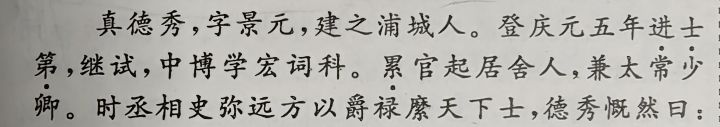 真德秀,字景元,建之浦城人。登庆元五年进士
第,继试,中博学宏词科。累官起居舍人,兼太常少
卿。时丞相史弥远方以爵禄縻天下士,德秀慨然曰: